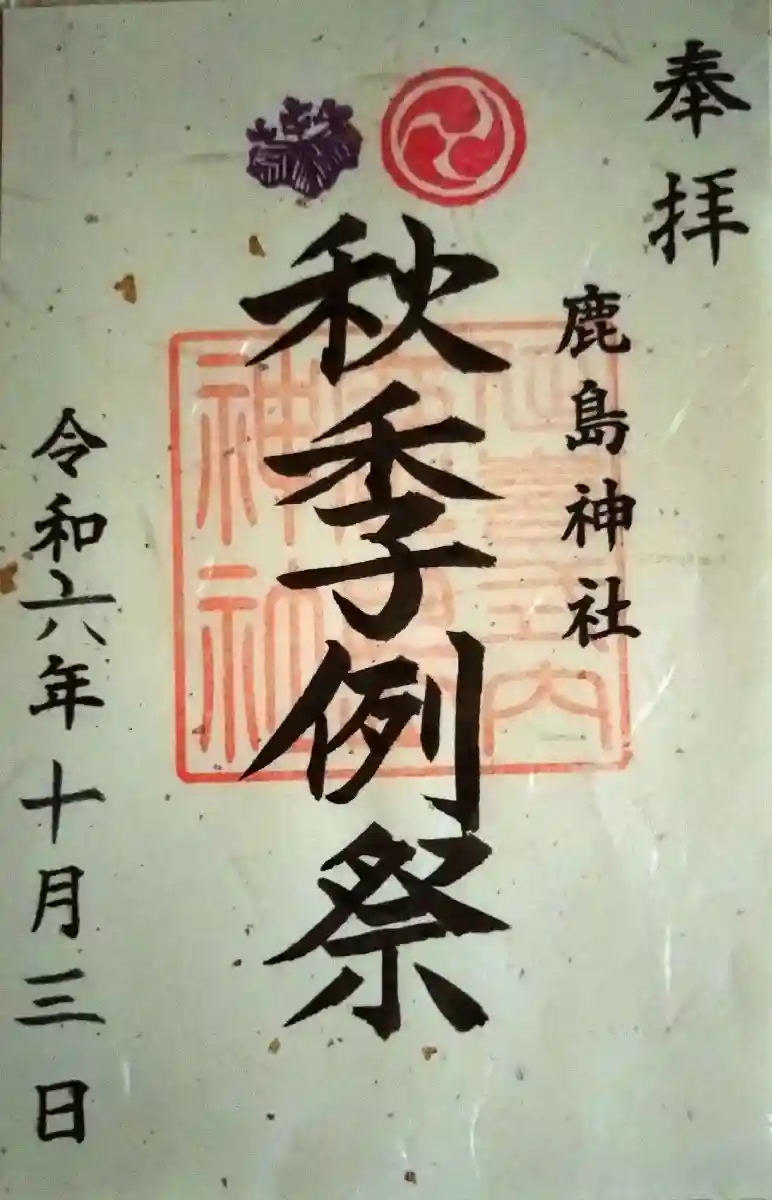 奉拝
鹿島神社
秋季例祭
令和六年十月三日